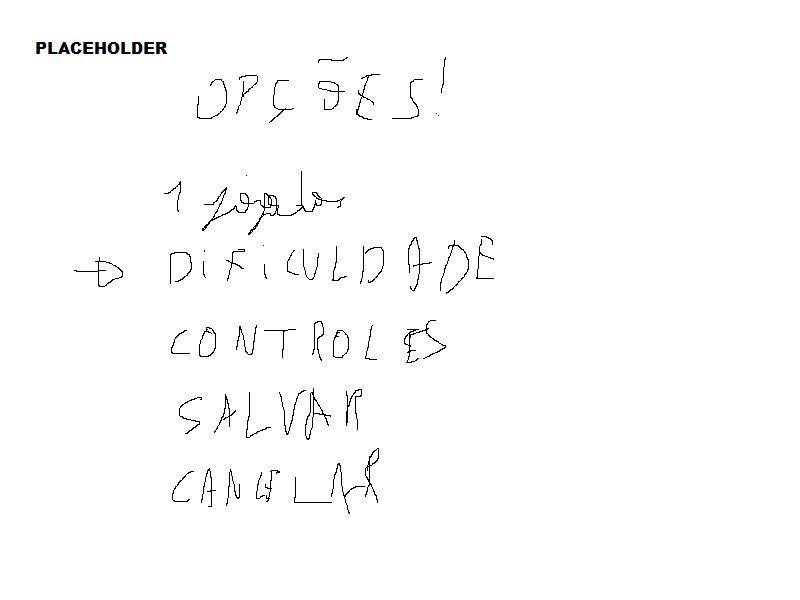 PLACEHOLDER
OPÇÕES!
1 jogador
DIFICULDADE
CONTROLES
SALVAR
CANCELAR